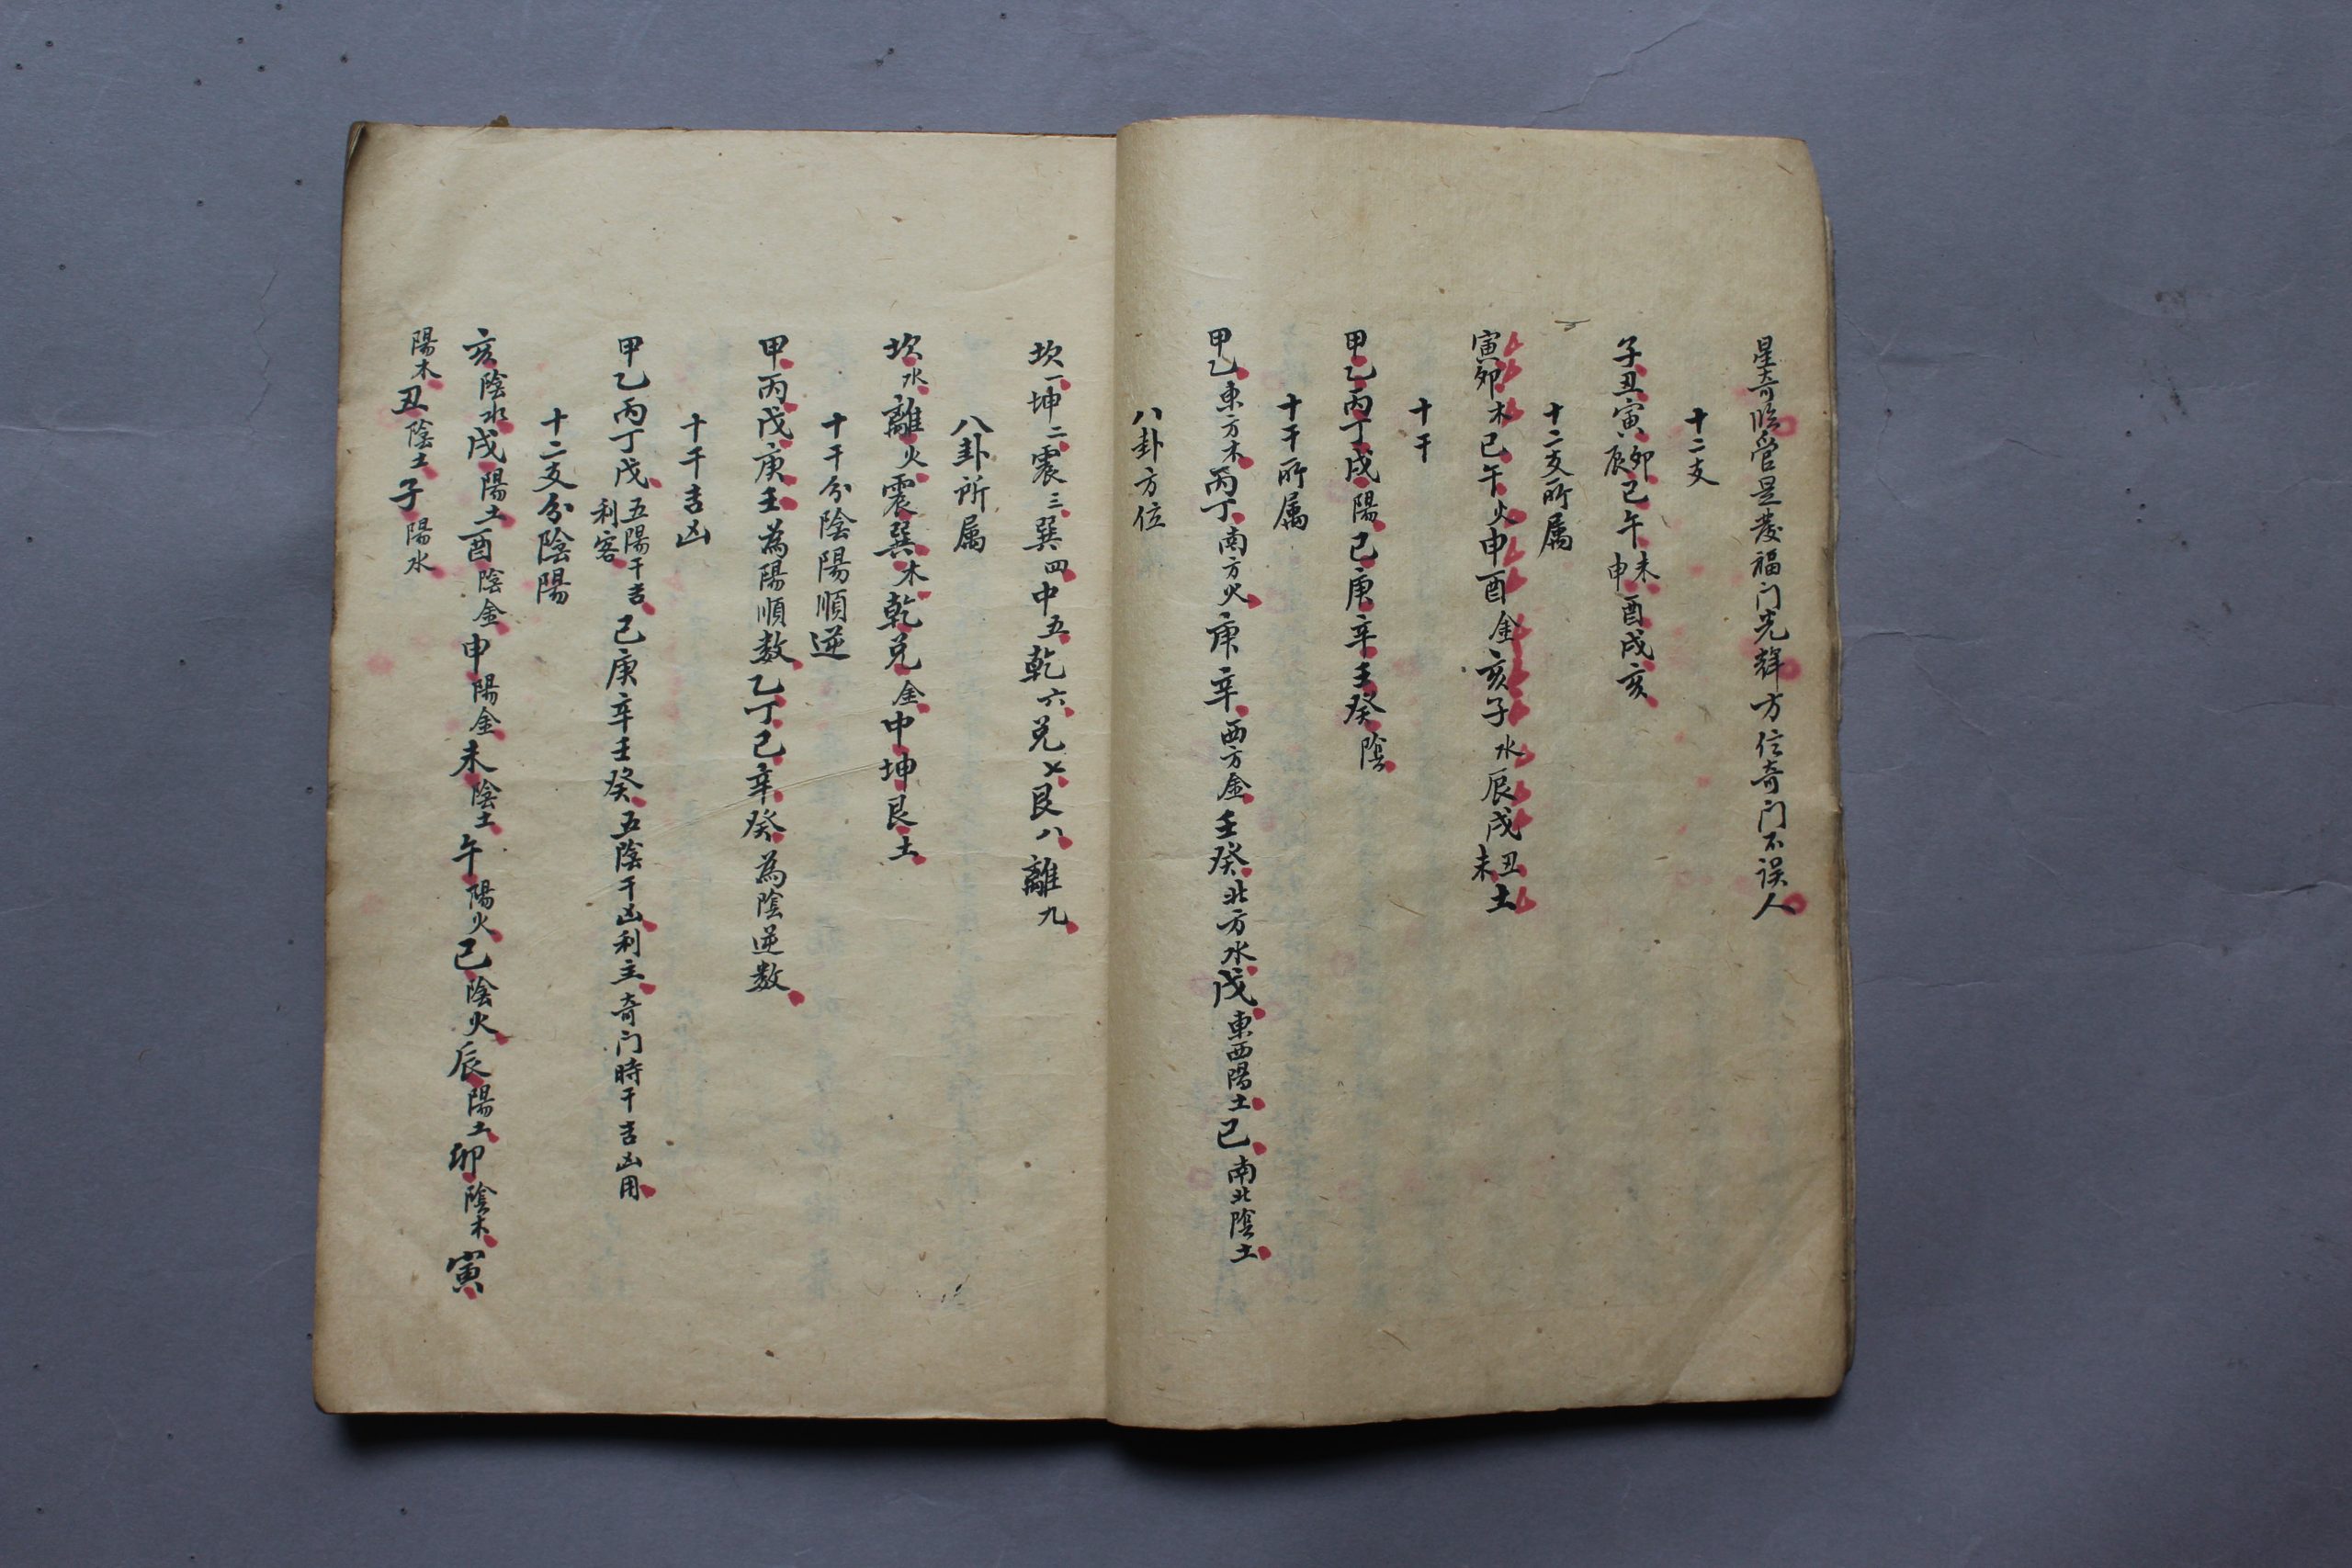 星奇臨官是發福门光輝方位奇门不误人
十二支
子丑寅卯辰巳午未申酉戌亥
十二支所属
寅卯木巳午火申酉金亥子水辰戌丑未土
十干
甲乙丙丁戊陽己庚辛壬癸陰
十干所属
甲乙東方木丙丁南方火庚辛西方金壬癸北方水戊東西陽土己南北陰土
八卦方位
坎一坤二震三巽四中五乾六兑七艮八離九
八卦所属
坎水離火震巽木乾兑金中坤艮土
十干分陰陽順逆
甲丙戊庚壬為陽順数乙丁己辛癸為陰逆数
十干吉凶
甲乙丙丁戊五陽干吉利客己庚辛壬癸五陰干凶利主奇门時干吉凶用
十二支分陰陽
亥陰水戌陽土酉陰金申陽金未陰土午陽火巳陰火辰陽土卯陰木寅
陽木丑陰土子陽水